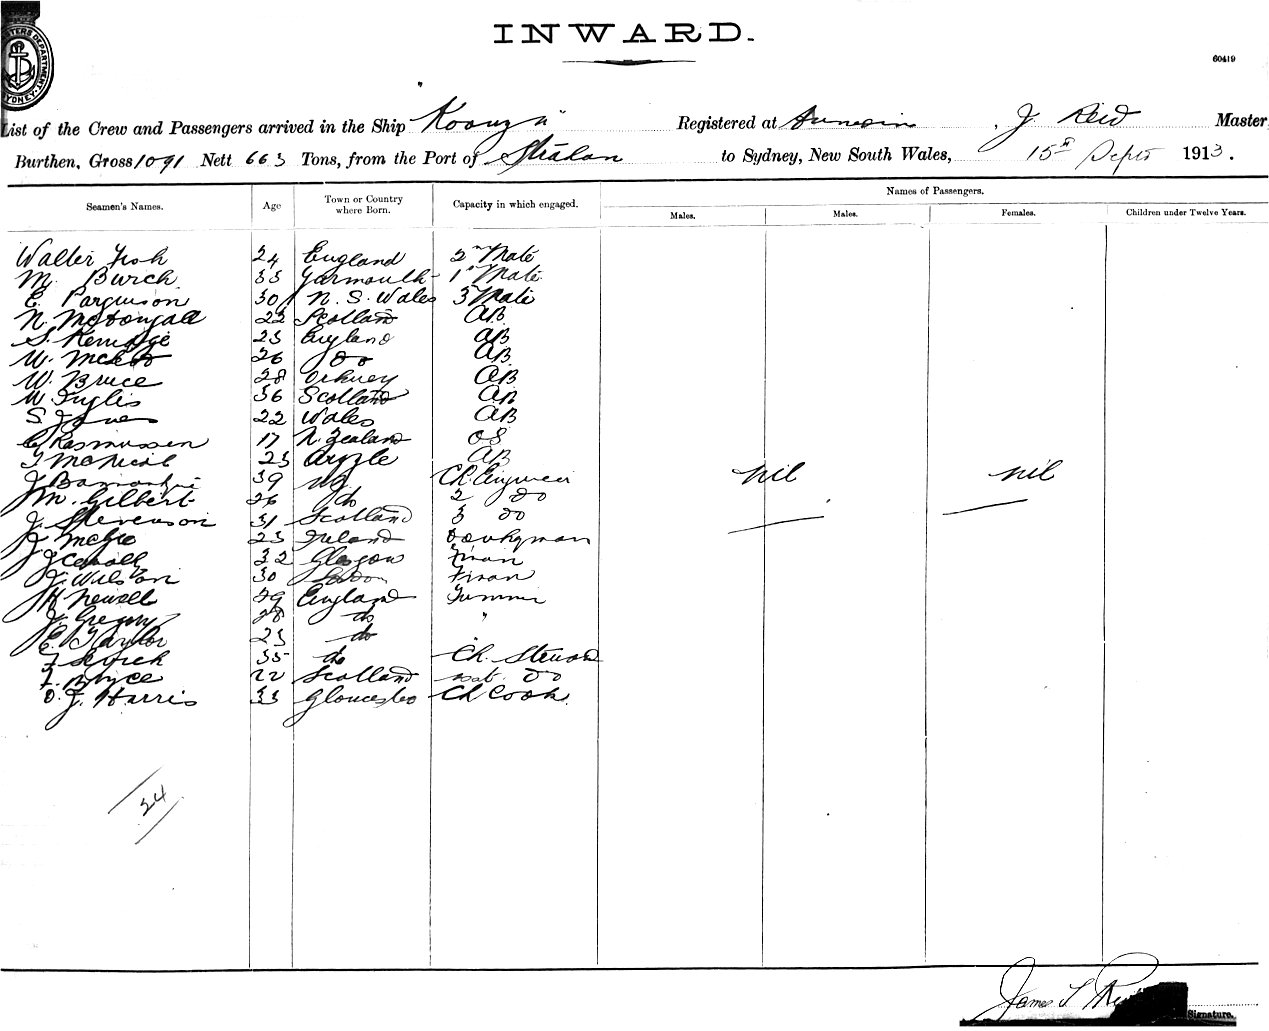 INWARD.
60419
List of the Crew and Passengers arrived in the Ship "Koonya" Registered at Dunedin, J Reid Master
Burthen, Gross 1091 Nett 663 Tons, from the Port of Strahan to Sydney, New South Wales, 15th Sept 1913.
Seamen's Names. Age Town or Country where Born. Capacity in which engaged. Names of Passengers.
Males. Males. Females. Children under Twelve Years.
Walter Fish 24 England 2nd Mate
M. Burch 33 Yarmouth 1st Mate
E. 30 N. S. Wales 3 Mate
N. McDougall 22 Scotland AB
S. 23 England AB
W. 26 Do AB
W. Bruce 28 Orkney AB
W. Inglis 36 Scotland AB
S Jones 22 Wales AB
C Rasmussen 17 N. Zealand OS
T McNicol 23 Argyle AB
J 39 Ch. Engineer
M. Gilbert 26 do 2 Do
J. Stevenson 31 Scotland 3 Do
J McGee 23 Ireland Donkyman
J Carroll 32 Glasgow Firman
J. Wilson 30 London Firman
H Newell 29 England Trimmer
J. Gregory 28 do "
E. Taylor 23 do "
F 35 do Ch. Steward
F. Bryce 22 Scotland Do
O. J. Harris 33 Gloucester Ch Cook
nil nil
24
James T Reid
Signature.